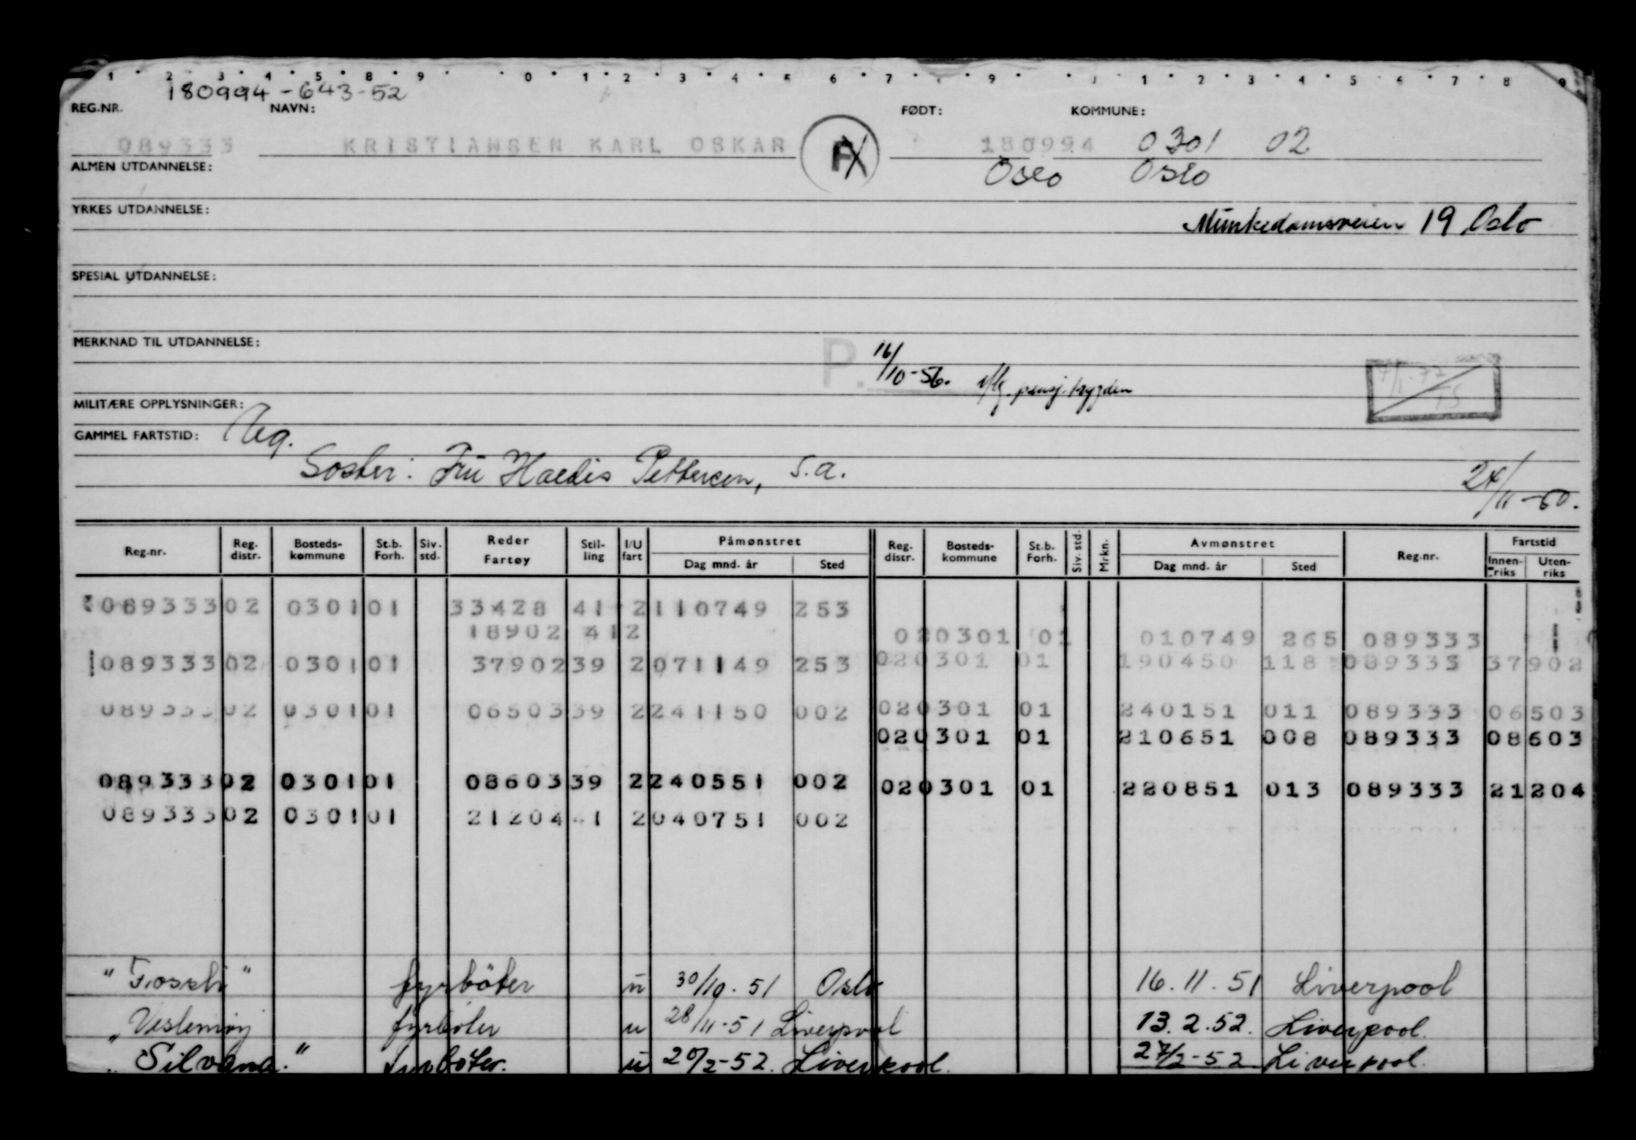 1 2 3 4 5 8 9 0 1 2 3 4 5 6 7 9 1 2 3 4 5 6 7 8 9
180994-643-52
REG.NR. NAVN: FØDT: KOMMUNE:
089333 KRISTIANSEN KARL OSKAR 180994 0301 02
ALMEN UTDANNELSE: Oslo Oslo
YRKES UTDANNELSE: Munkedamsveien 19 Oslo
SPESIAL UTDANNELSE:
MERKNAD TIL UTDANNELSE:
P. 16/10-56. iflg. pensj. trygden
MILITÆRE OPPLYSNINGER:
GAMMEL FARTSTID:
Søster: Fru Haldis Pettersen, s.a.
24/11-50.
Reg.nr. Reg. distr. Bosteds-kommune St.b. Forh. Siv. std. Reder Fartøy Stil-ling I/U fart Påmønstret Dag mnd. år Sted Reg. distr. Bosteds-kommune St.b. Forh. Siv. std. Mrkn. Avmønstret Dag mnd. år Sted Reg.nr. Fartstid Innen-riks Uten-riks
089333 02 0301 01 33428 41 2 110749 253
18902 41 2 02 0301 01 010749 265 089333
089333 02 0301 01 37902 39 2 071149 253 02 0301 01 190450 118 089333 37902
089333 02 0301 01 06503 39 2 241150 002 02 0301 01 240151 011 089333 06503
02 0301 01 210651 008 089333 08603
089333 02 0301 01 08603 39 2 240551 002 02 0301 01 220851 013 089333 21204
089333 02 0301 01 21204 41 2 040751 002
"Fossli" fyrbøter u 30/10-51 Oslo 16.11.51 Liverpool
"Veslemøy fyrbøter u 28/11-51 Liverpool 13.2.52. Liverpool.
"Silvana." fyrbøter. u 20/2-52. Liverpool. 27/2-52 Liverpool.